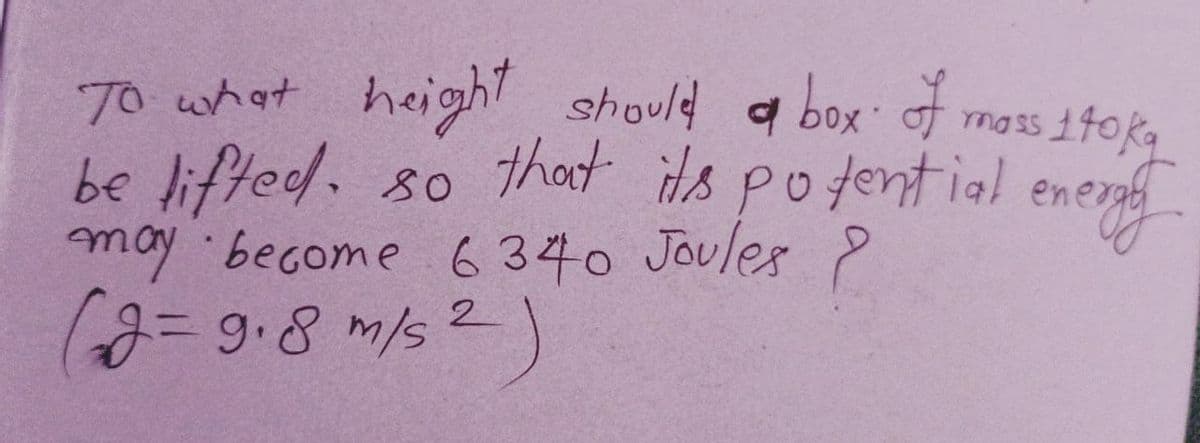 To what height should a box of mass 140 kg
be lifted. so that its potential energy
may become 6340 Joules ?
(g = 9.8 m/s 2)